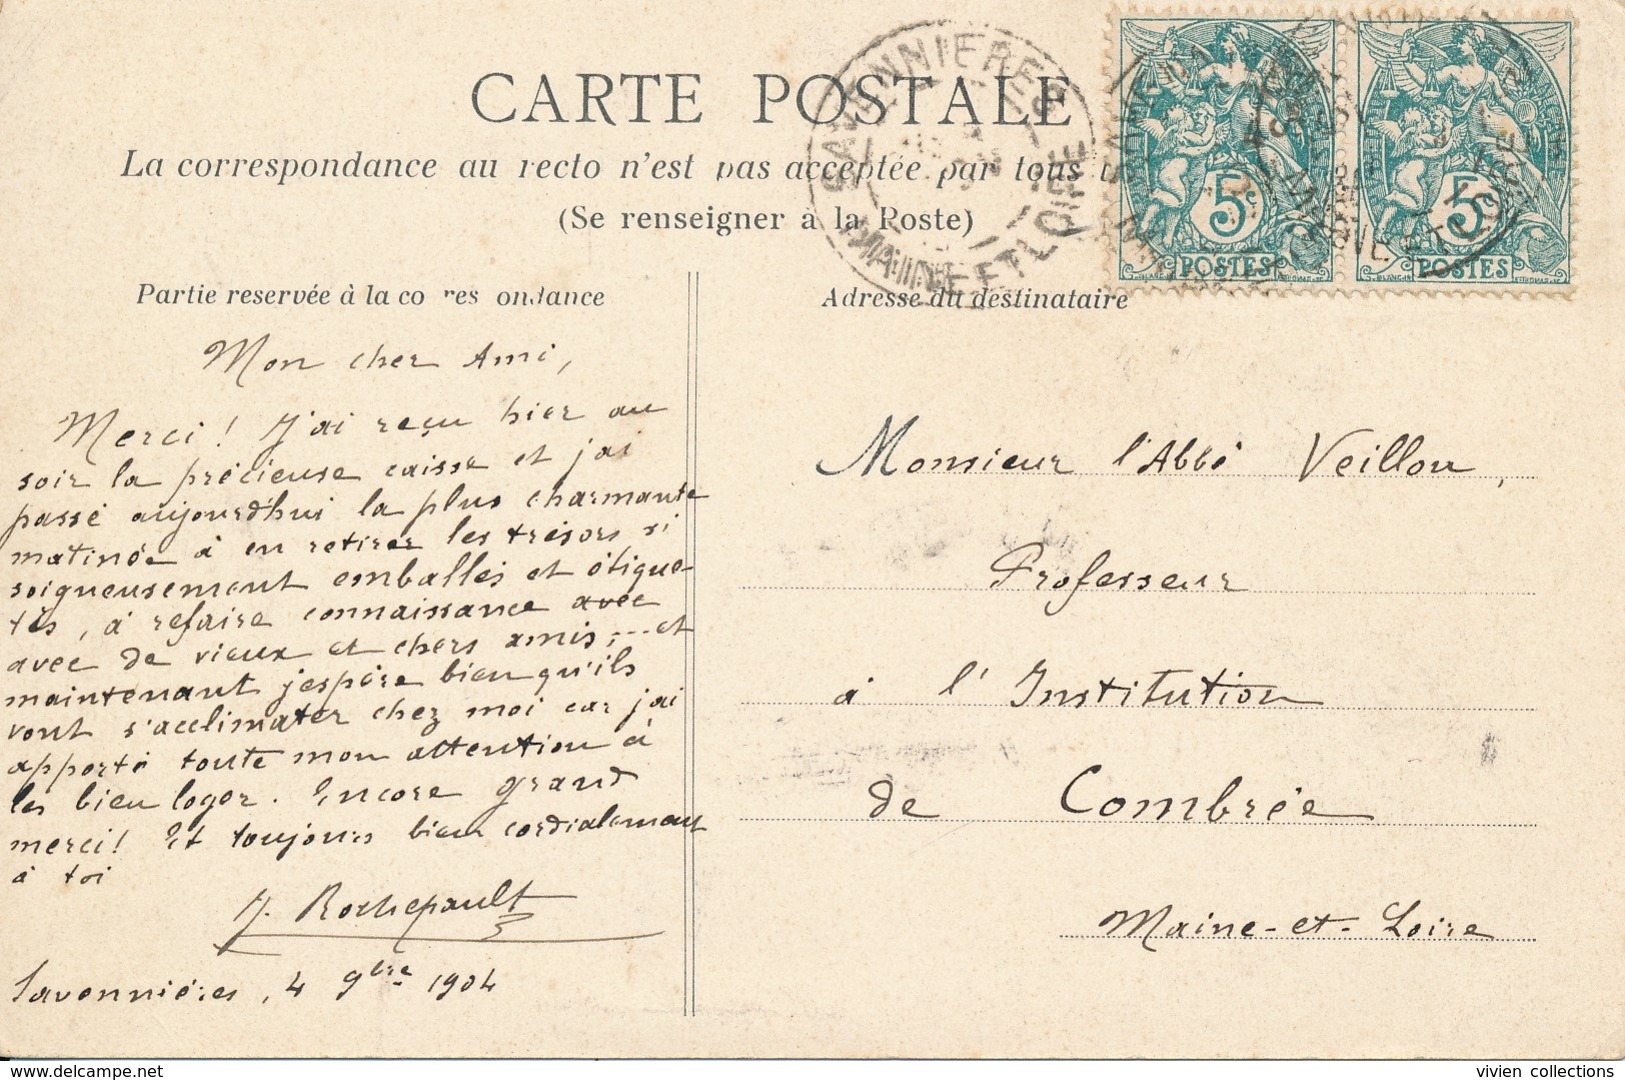 CARTE POSTALE
La correspondance au recto n'est pas acceptée par tous
(Se renseigner à la Poste)
SAVENNIERES
MAINE ET LOIRE
5c
POSTES
5c
POSTES
Partie reservée à la co res ondance
Mon cher Ami,
Merci! J'ai reçu hier au
soir la précieuse caisse et j'ai
passé aujourd'hui la plus charmante
matinée à en retirer les trésors si
soigneusement emballés et étique-
tés, à refaire connaissance avec
avec de vieux et chers amis, ... et
maintenant j'espère bien qu'ils
vont s'acclimater chez moi car j'ai
apporté toute mon attention à
les bien loger. Encore grand
merci! Et toujours bien cordialement
à toi
J. Rochepault
Savennières, 4 9bre 1904
Adresse du destinataire
Monsieur l'Abbé Veillon,
Professeur
à l'Institution
de Combrée
Maine-et-Loire
www.delcampe.net
vivien collections